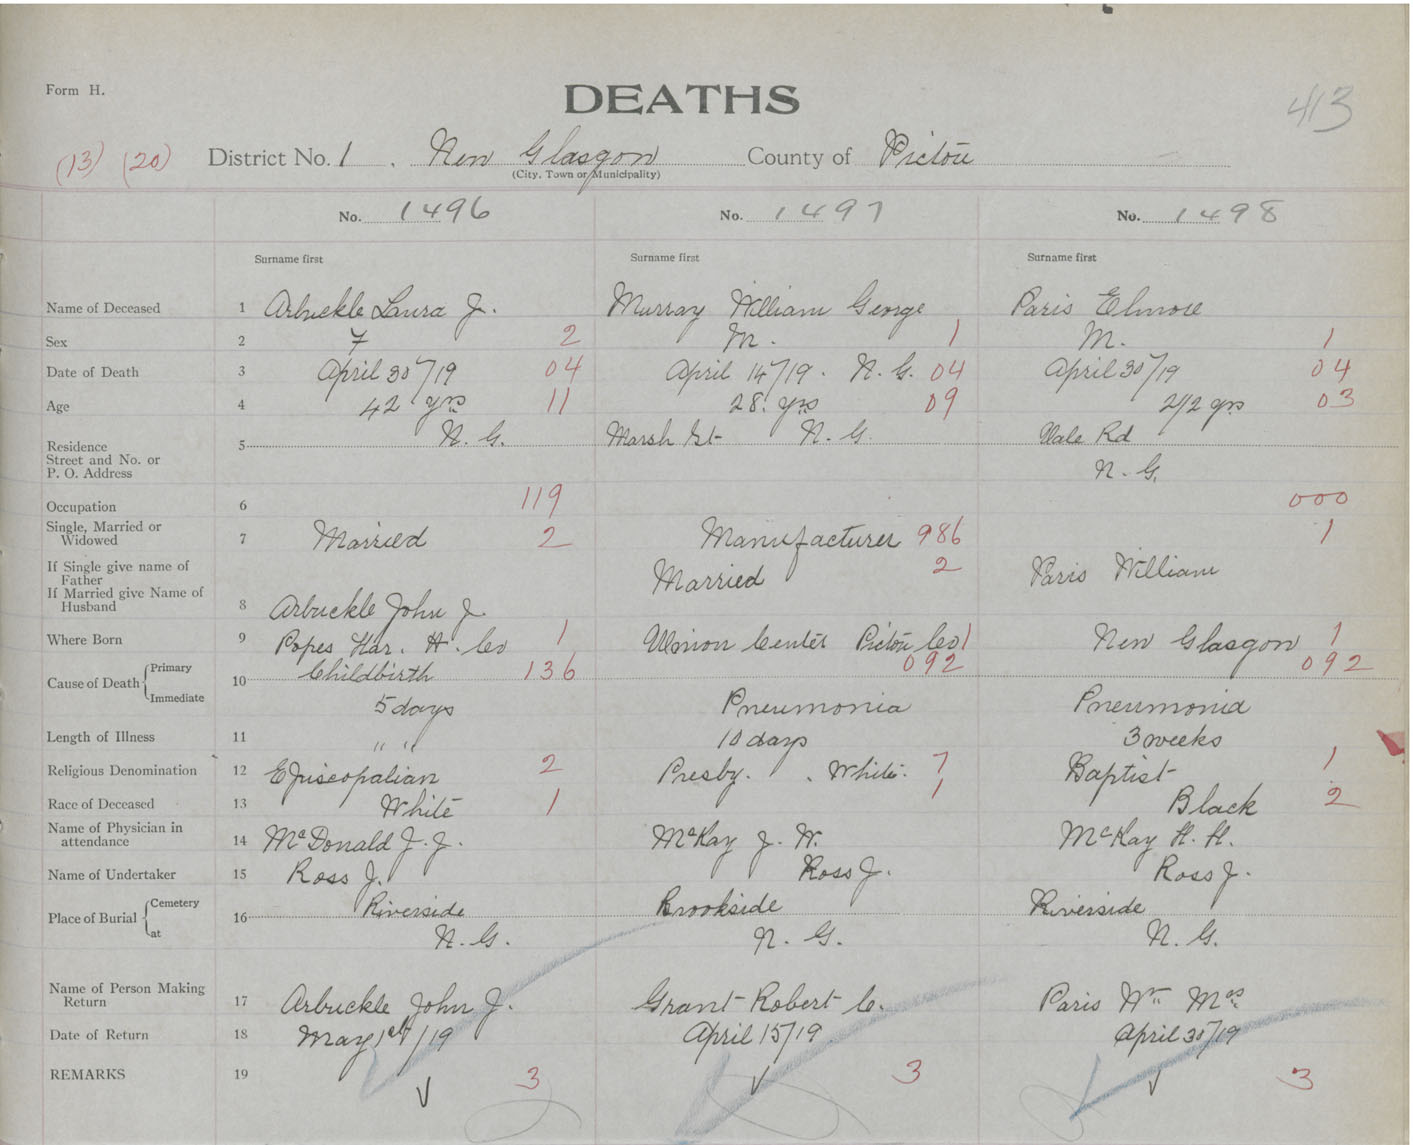 Form H.
DEATHS
413
(13) (20) District No. 1. New Glasgow County of Pictou
(City, Town or Municipality)
No. 1496 No. 1497 No. 1498
Surname first Surname first Surname first
Name of Deceased 1 Arbuckle Laura J. Murray William George Paris Elmore
Sex 2 F 2 M. 1 M. 1
Date of Death 3 April 30/19 04 April 14/19. N.G. 04 April 30/19 04
Age 4 42 yrs 11 28. yrs 09 2 1/2 yrs 03
Residence Street and No. or P. O. Address 5 N.G. Marsh St N.G. Vale Rd
N.G.
Occupation 6 119 000
Single, Married or Widowed 7 Married 2 Manufacturer 986 1
If Single give name of Father
If Married give Name of Husband 8 Arbuckle John J. Married 2 Paris William
Where Born 9 Popes Har. H. Co 1 Union Center Pictou Co 1 New Glasgow 1
Cause of Death Primary Immediate 10 Childbirth 136 092 092
5 days Pneumonia Pneumonia
Length of Illness 11 " " 10 days 3 weeks
Religious Denomination 12 Episcopalian 2 Presby. . White. 7 Baptist 1
Race of Deceased 13 White 1 1 Black 2
Name of Physician in attendance 14 McDonald J. J. McKay J. W. McKay H. H.
Name of Undertaker 15 Ross J. Ross J. Ross J.
Place of Burial Cemetery at 16 Riverside Brookside Riverside
N. G. N. G. N. G.
Name of Person Making Return 17 Arbuckle John J. Grant Robert C. Paris Wm Mrs
Date of Return 18 May 1st/19 April 15/19 April 30/19
REMARKS 19 3 3 3